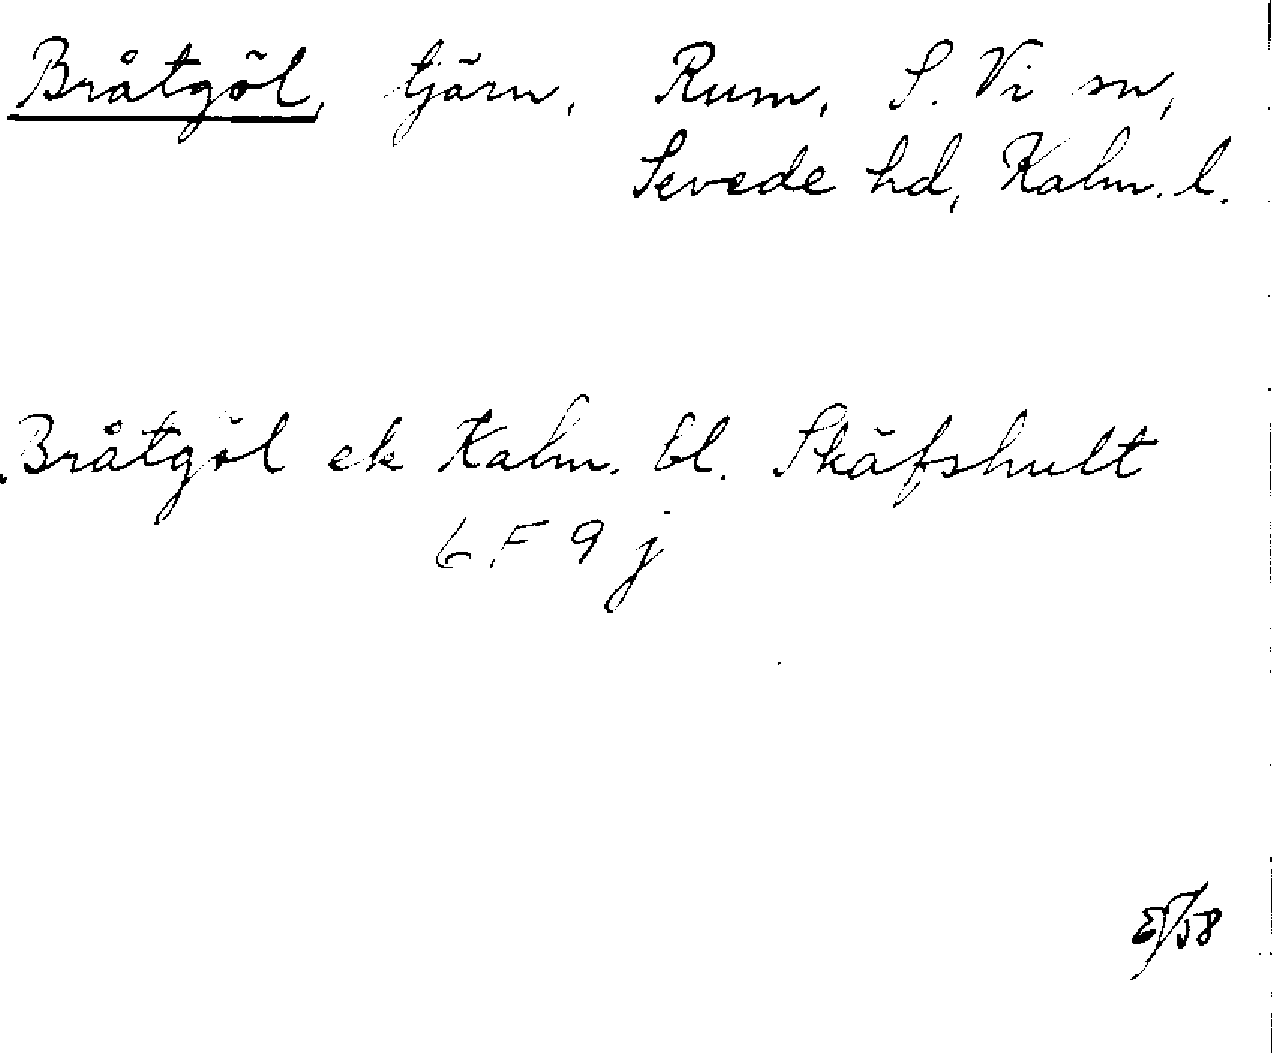 Bråtgöl, tjärn, Rum, S. Vi sn,
Sevede hd, Kalm. l.
Bråtgöl ek Kalm. bl. Skäfshult
6 F 9 j